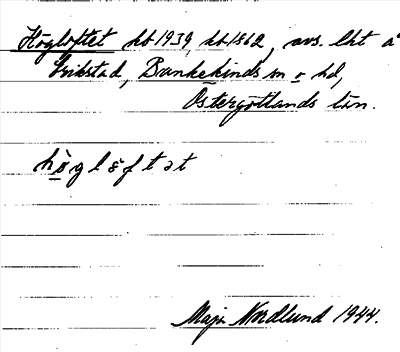 Högloftet kb 1939, kb 1862, avs. lht å
Grikstad, Bankekinds sn o hd,
Östergötlands län.
hø̀glɵ̀ftət
Maja Nordlund 1944.